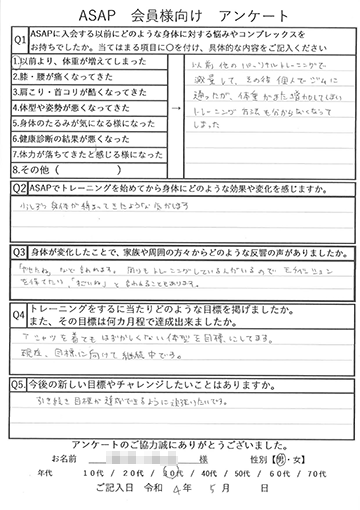 ASAP 会員様向け アンケート
Q1 ASAPに入会する以前にどのような身体に対する悩みやコンプレックスを
お持ちでしたか。当てはまる項目に○を付け、具体的な内容をご記入ください
1.以前より、体重が増えてしまった
2.膝・腰が痛くなってきた
3.肩こり・首コリが酷くなってきた
4.体型や姿勢が悪くなってきた
5.身体のたるみが気になる様になった
6.健康診断の結果が悪くなった
7.体力が落ちてきたと感じる様になった
8.その他( )
→
以前他のパーソナルトレーニングで
減量して、その後個人でジムに
通ったが、体重がまた増加してしまい
トレーニング方法も分からなくなって
しまった
Q2 ASAPでトレーニングを始めてから身体にどのような効果や変化を感じますか。
少しずつ身体が締まってきたような気がします
Q3 身体が変化したことで、家族や周囲の方々からどのような反響の声がありましたか。
「やせたね」などと言われます。周りもトレーニングしている人がいるので モチベーション
を保てたい「すごいね」と言われることもあります。
Q4 トレーニングをするに当たりどのような目標を掲げましたか。
また、その目標は何カ月程で達成出来ましたか。
Tシャツを着てもはずかしくない体型を目標にしてます。
現在、目標に向けて継続中です。
Q5. 今後の新しい目標やチャレンジしたいことはありますか。
引き続き目標が達成できるように頑張りたいです。
アンケートのご協力誠にありがとうございました。
お名前 様 性別【男・女】
年代 10代 / 20代 / 30代 / 40代 / 50代 / 60代 / 70代
ご記入日 令和 4年 5月 日